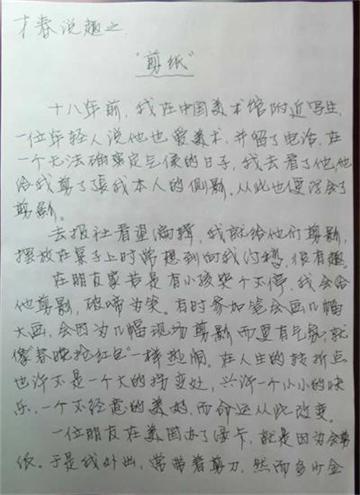 才春说趣之
“剪纸”
十八年前,我在中国美术馆附近写生,
一位年轻人说他也爱美术,并留了电话,在
一个无法确定气候的日子,我去看了他,他
给我剪了张我本人的侧影。从此也便结合了
剪影。
去报社看望编辑,我就给他们剪影,
摆放在桌子上时常想到向我约稿,很有趣。
在朋友家若是有小孩哭个不停,我会给
他剪影,破啼为笑。有时参加笔会画几幅
大画,会因为几幅现场剪影而更有气氛,就
像“春晚抢红包”一样热闹。在人生的转折点
也许不是一个大的转变处,兴许一个小小的快
乐,一个不经意的美好,而命运从此改变。
一位朋友在美国办了绿卡,就是因为会剪
纸。于是我外出,常带着剪刀,然而多少金